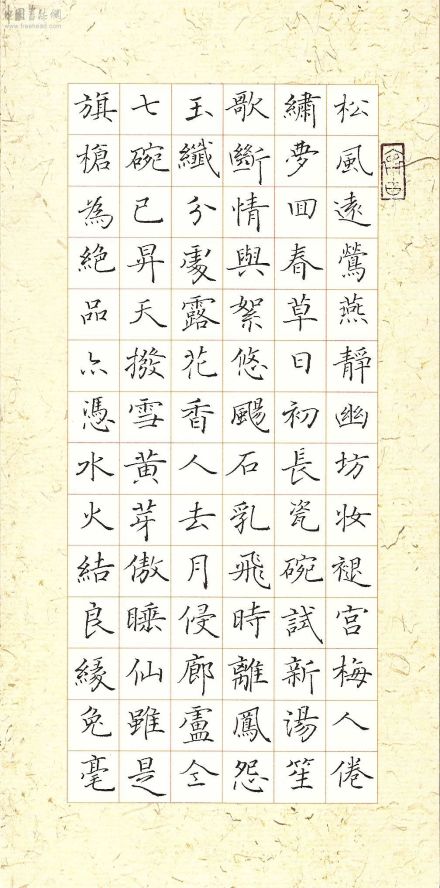 松風遠鶯燕靜幽坊妝褪宮梅人倦
繡夢囬春草日初長瓷碗試新湯笙
歌斷情與絮悠颺石乳飛時離鳳怨
玉纖分處露花香人去月侵廊盧仝
七碗已昇天撥雪黃芽傲睡仙雖是
旗槍為絕品亦憑水火結良緣兔毫
www.freehead.com